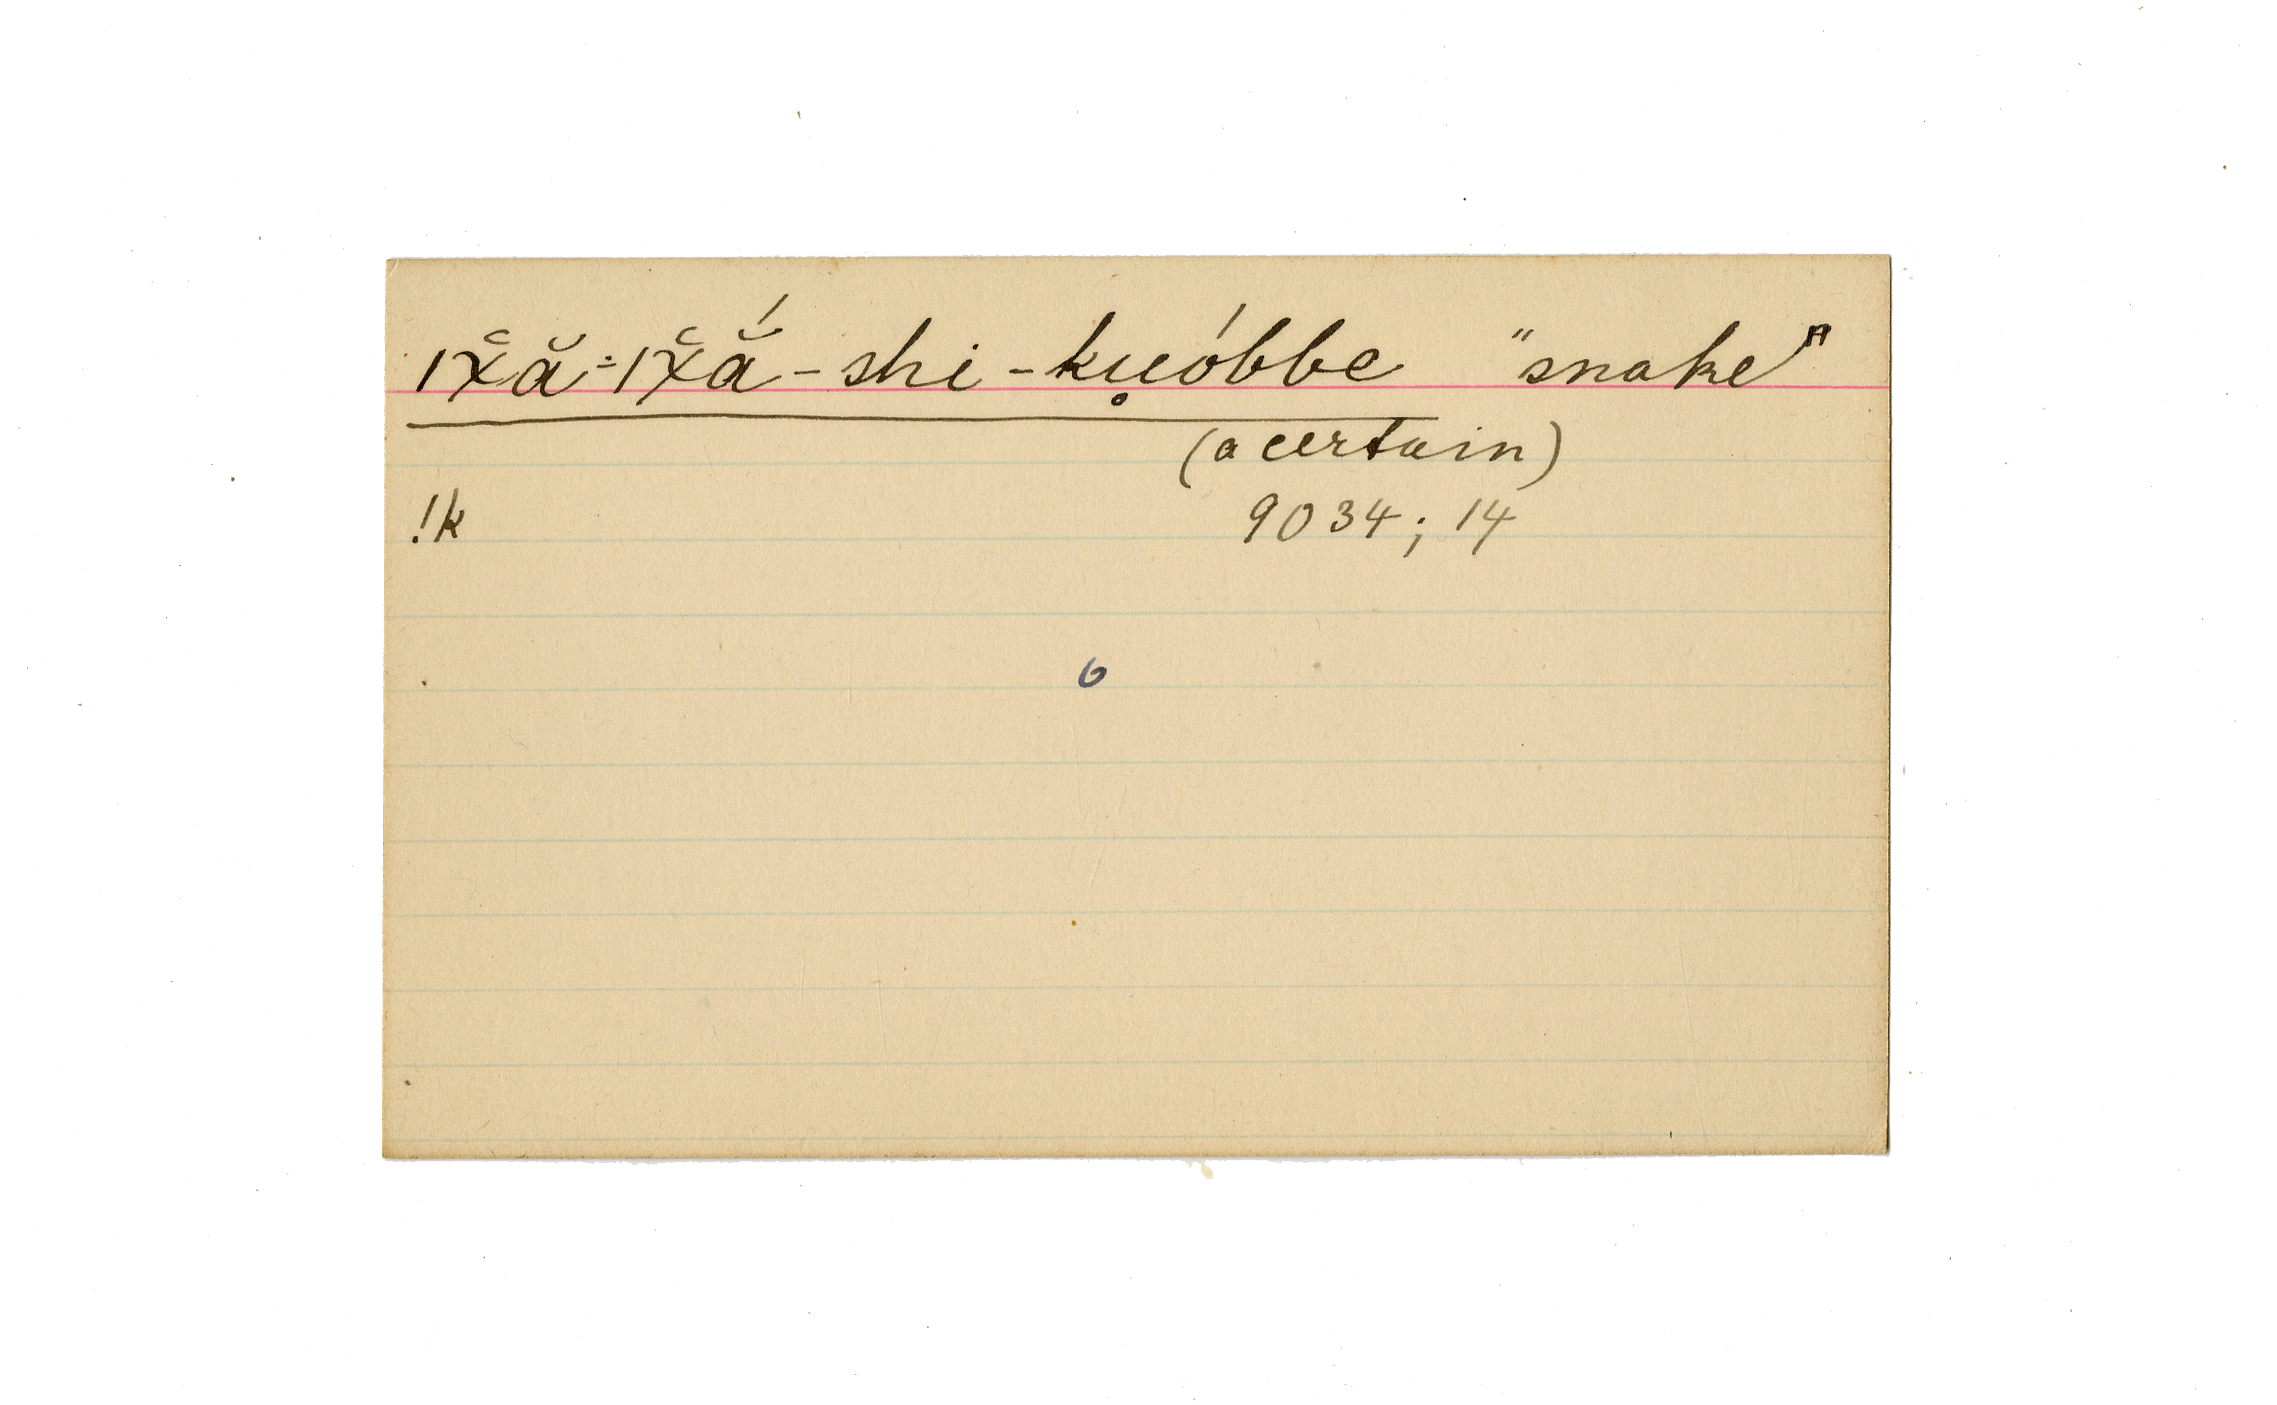 ǀχ̆ă-ǀχ̆ắ-shi-ku̥óbbe "snake"
(a certain)
!k 9034; 14
6